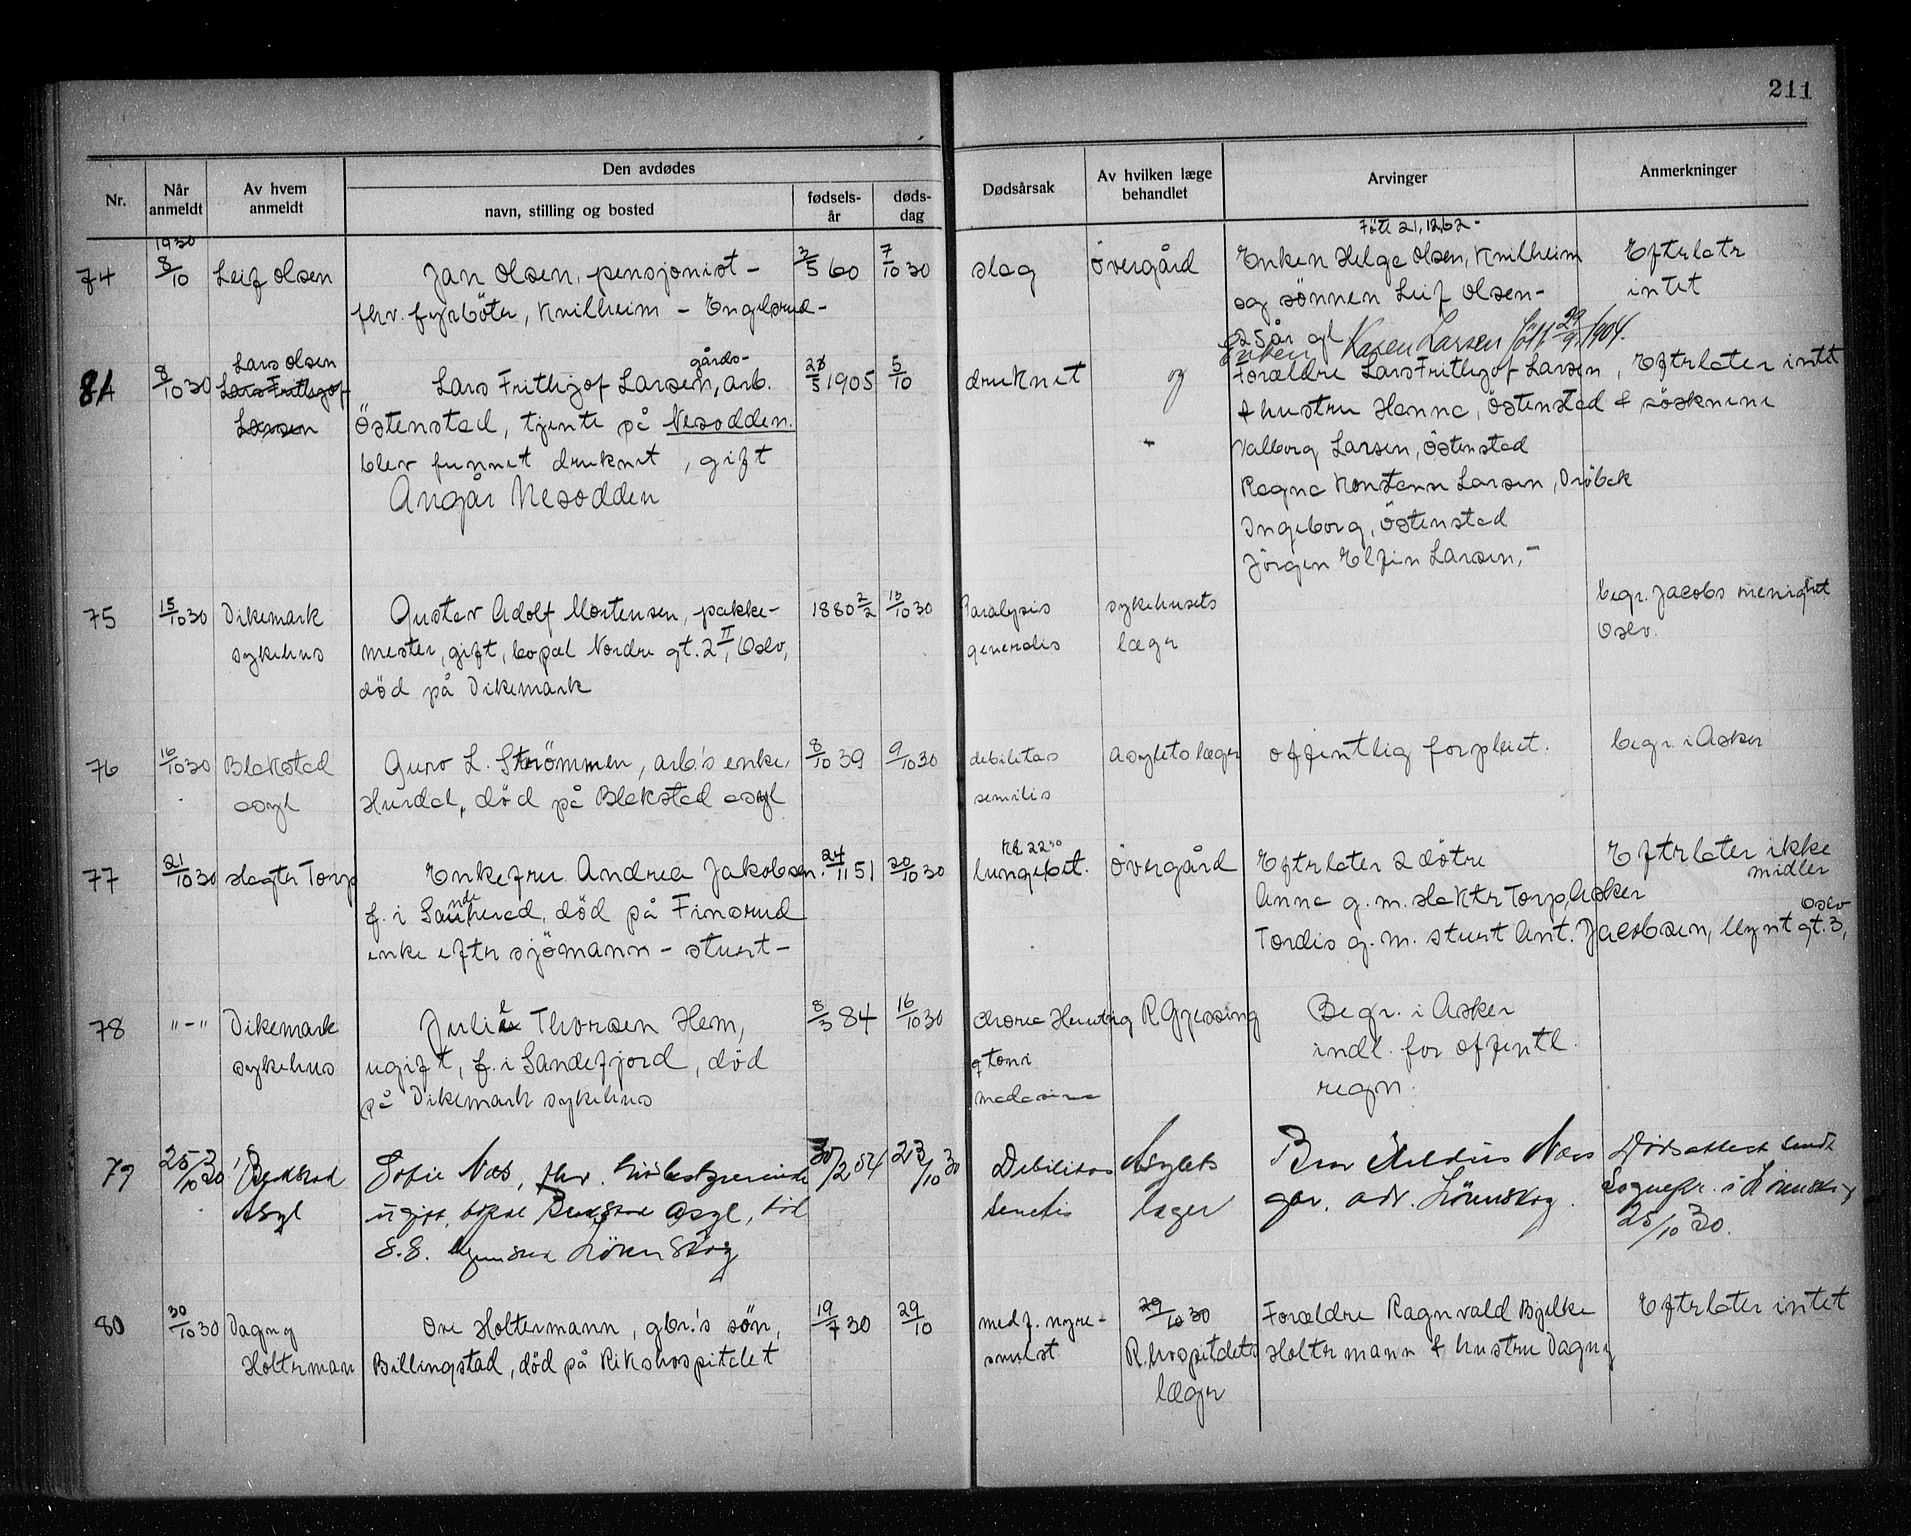 211
Nr.
Når anmeldt
Av hvem anmeldt
Den avdødes
navn, stilling og bosted
fødsels-år
døds-dag
Dødsårsak
Av hvilken læge behandlet
Arvinger
Anmerkninger
74
1930
8/10
Leif Olsen
Jan Olsen, pensjonist –
fhv. fyrböter, Knilheim – Engelsrud –
3/5 60
7/10 30
slag
Övergård
Fött 21,12,62 –
Enken Helga Olsen, Knilheim
og sönnen Leif Olsen –
25 år gl
Efterlatr
intet
81
8/10 30
Lars Olsen
Lars Frithjof
Larsen
gårds-
Lars Frithjof Larsen, arb.
Östenstad, tjente på Nesodden.
blev funnet druknet, gift
Angår Nesodden
5 1905
5/10
druknet
og
-
Enken Karen Larsen fött 29/9 1904.
Forældre Lars Frithjof Larsen,
& hustru Hanna, Östenstad & söskneni
Valborg Larsen, Östenstad
Ragna Konstanse Larsen, Dröbak
Ingeborg, Östenstad
Jörgen Elfin Larsen, –
Efterlater intet
75
15/10 30
Dikemark
sykehus
Gustav Adolf Mortensen, pakke-
mester, gift, bopæl Nordre gt. 2 II, Oslo,
död på Dikemark
1880 2/2
13/10 30
Paralysis
generalis
sykehusets
læger
begr. Jacobs menighet
Oslo.
76
16/10 30
Blakstad
asyl
Guro L. Strömmen, arb.'s enke,
Hurdal, död på Blakstad asyl
8/10 39
9/10 30
debilitas
semilis
asylets læger
offentlig forpleiet.
begr. i Asker
77
21/10 30
slagter Torp
Enkefru Andrea Jakobsen.
f. i Sauherad, död på Finsrud
enke efter sjömann – stuert –
24/11 51
20/10 30
Kl. 22 30
lungebet.
Övergård
Efterlater 2 döttre
Anna g. m. slaktr Torp, Asker
Tordis g. m. stuert Ant. Jacobsen, Mynt gt. 3,
Oslo
Efterlater ikke
midler
78
"-"
Dikemark
sykehus
Julie Thorsen Hem,
ugift, f. i Sandefjord, död
på Dikemark sykehus
8/3 84
16/10 30
chorea Hunting
toni
R. Gjessing
Begr. i Asker
indl. for offentl.
regn.
79
25/10 30
Blakstad
Asyl
Sofie Næs, fhv.
ugift, bopæl Blakstad Asyl, död
S. S. Lörenskog
30/2 54
23/10 30
Debilitas
senilis
Asylets
læger
Bror Næs
gar. adr. Lörenskog.
Dödsattest sendt
Sognepr. i Lörenskog
25/10 30.
80
30/10 30
Dagny
Holterman
Ove Holtermann, gbr.'s sön,
Billingstad, död på Rikshospitalet
19/7 30
29/10
medf. nyre-
svulst
29/10 30
R. hospitalets
læger
Forældre Ragnvald Bjelke
Holtermann & hustru Dagny
Efterlater intet